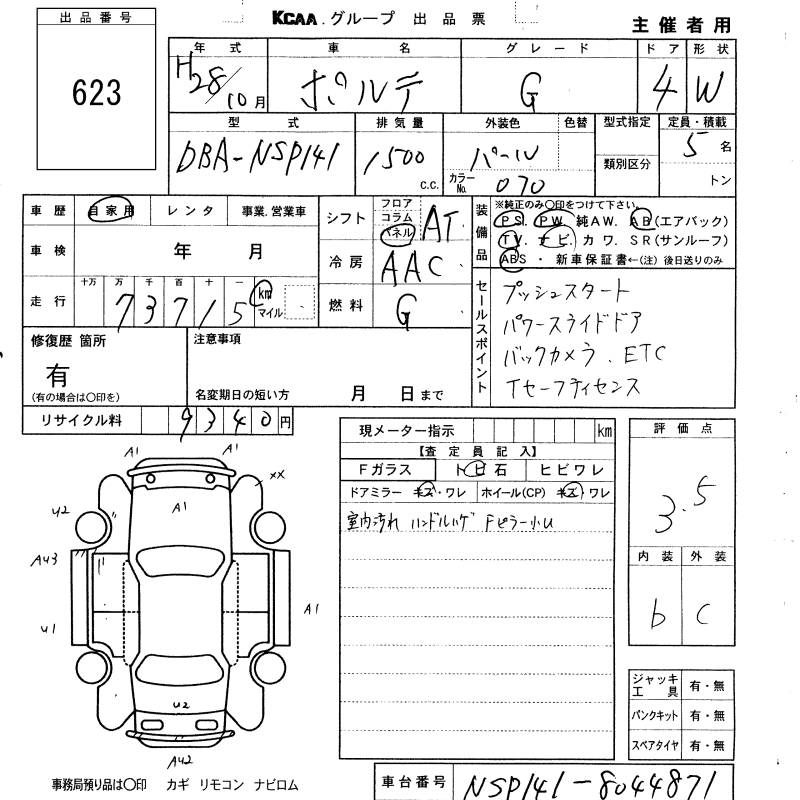 出品番号
623
KCAA.グループ 出品票
主催者用
年式 車名 グレード ドア 形状
H28/10月 ポルテ G 4 W
型式 排気量 外装色 色替 型式指定 定員・積載
DBA-NSP141 1500 c.c. パール 5名
カラーNo. 070 類別区分 トン
車歴 自家用 レンタ 事業.営業車
車検 年 月
走行 十万 万 千 百 十 一
73715 km マイル
シフト フロア コラム パネル AT
冷房 AAC
燃料 G
装備品
※純正のみ〇印をつけて下さい。
PS. PW. 純AW. AB(エアバック)
TV. ナビ. カワ. SR(サンルーフ)
ABS ・ 新車保証書←(注)後日送りのみ
セールスポイント
プッシュスタート
パワースライドドア
バックカメラ. ETC
Tセーフティセンス
修復歴 箇所
有
(有の場合は〇印を)
注意事項
名変期日の短い方 月 日まで
リサイクル料 9340円
現メーター指示 km
【査定員記入】
Fガラス トビ石 ヒビワレ
ドアミラー キズ・ワレ ホイール(CP) キズ・ワレ
室内汚れ ハンドルハゲ Fピラー小U
評価点
3.5
内装 外装
b C
A1 A1
XX
U2 A1
A43
U1 A1
U2
A42
ジャッキ工具 有・無
パンクキット 有・無
スペアタイヤ 有・無
事務局預り品は〇印 カギ リモコン ナビロム
車台番号 NSP141-8044871